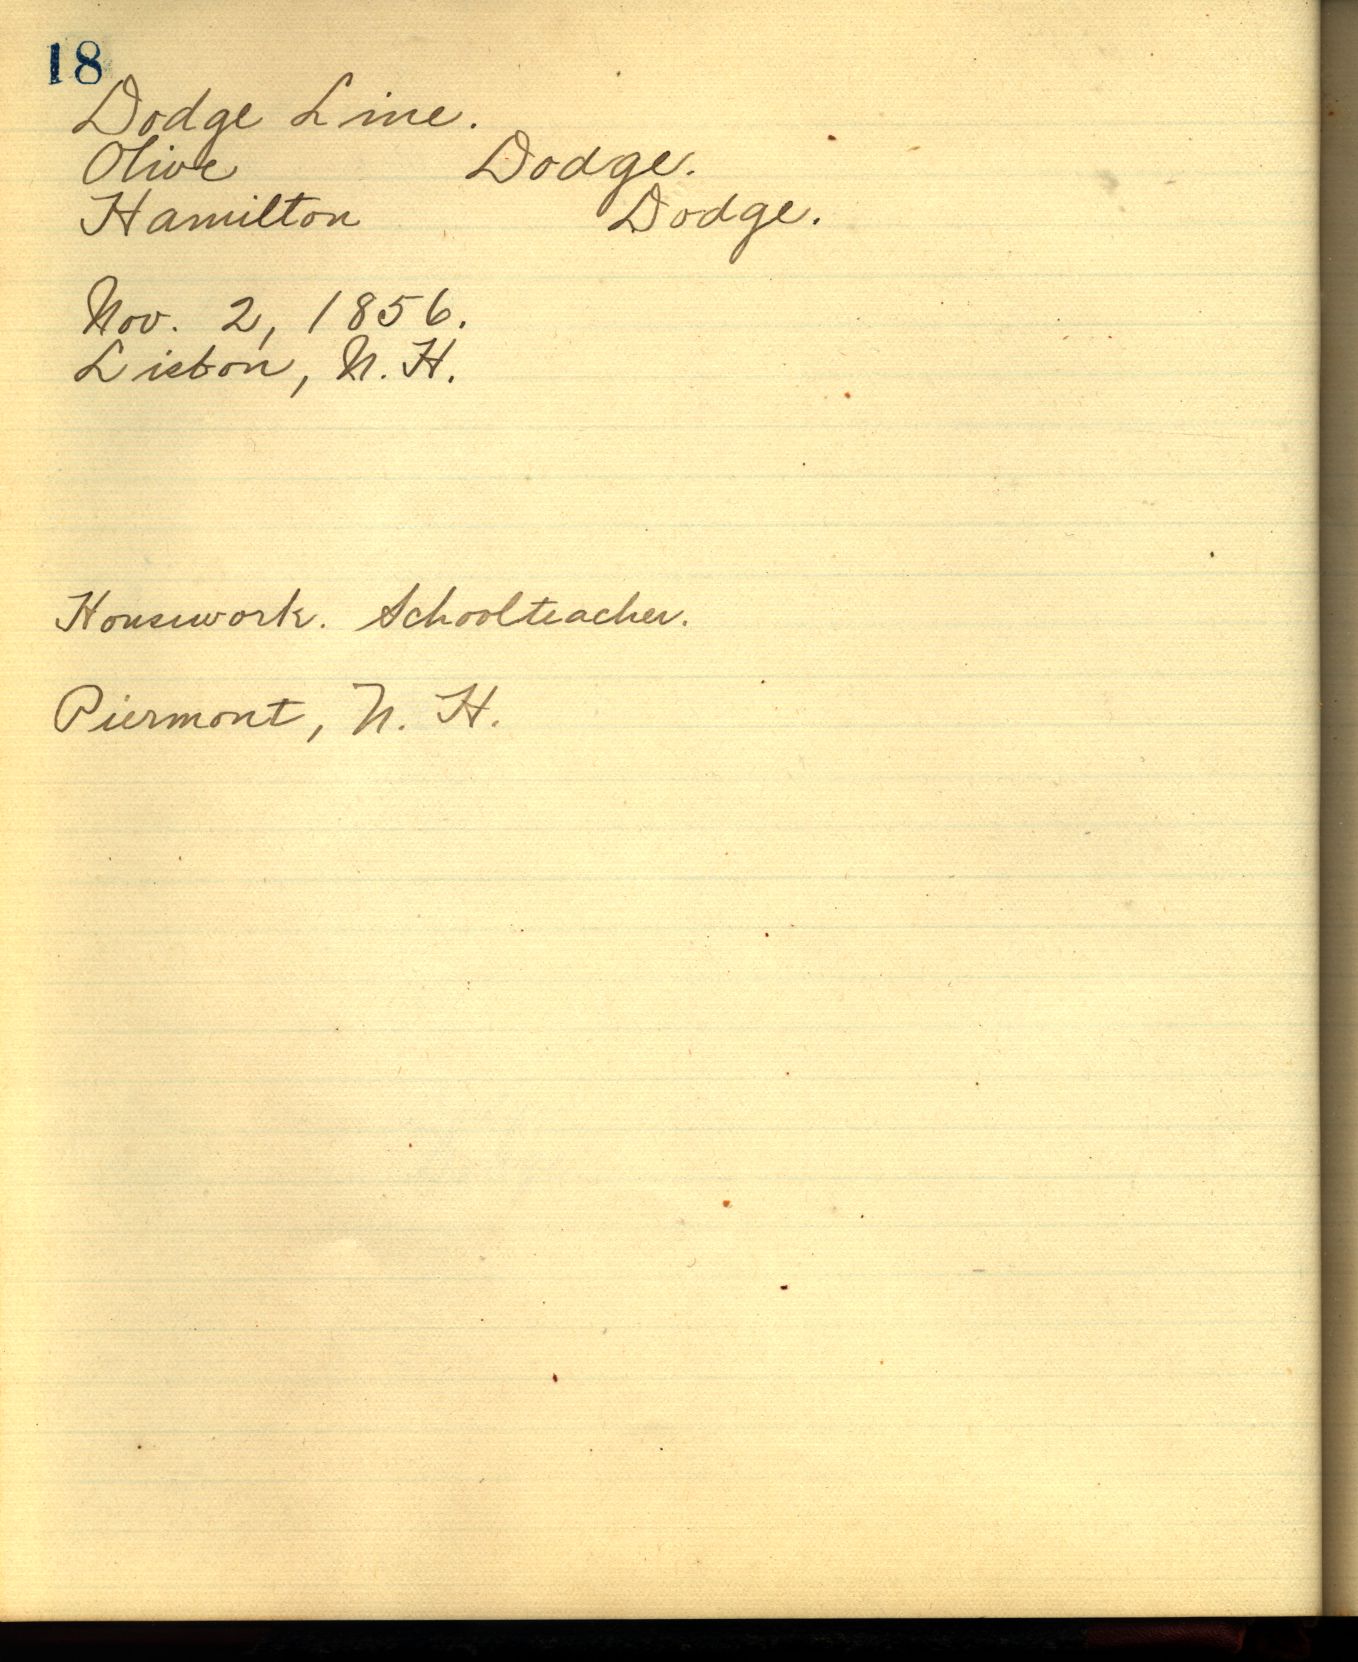 18
Dodge Line.
Olive Dodge.
Hamilton Dodge.
Nov. 2, 1856.
Lisbon, N.H.
Housework. Schoolteacher.
Piermont, N. H.